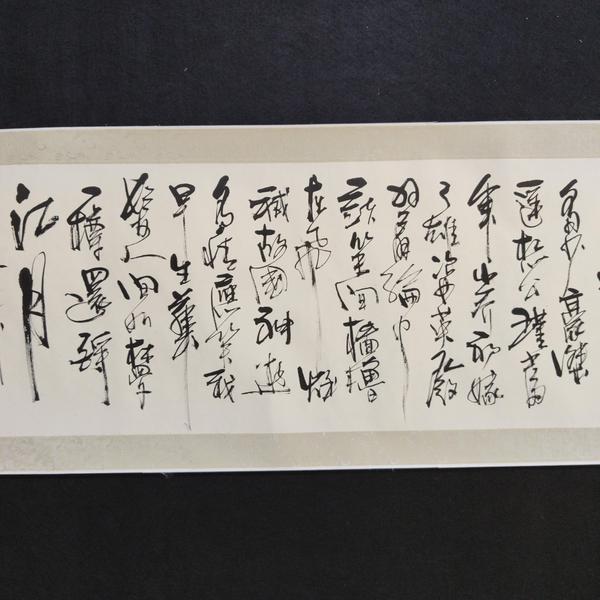 多少豪傑
遥想公瑾當
年小乔初嫁
了雄姿英發
羽扇綸巾
談笑间檣櫓
灰飛煙
滅故國神遊
多情應笑我
早生華
髮人间如夢
一樽還酹
江月